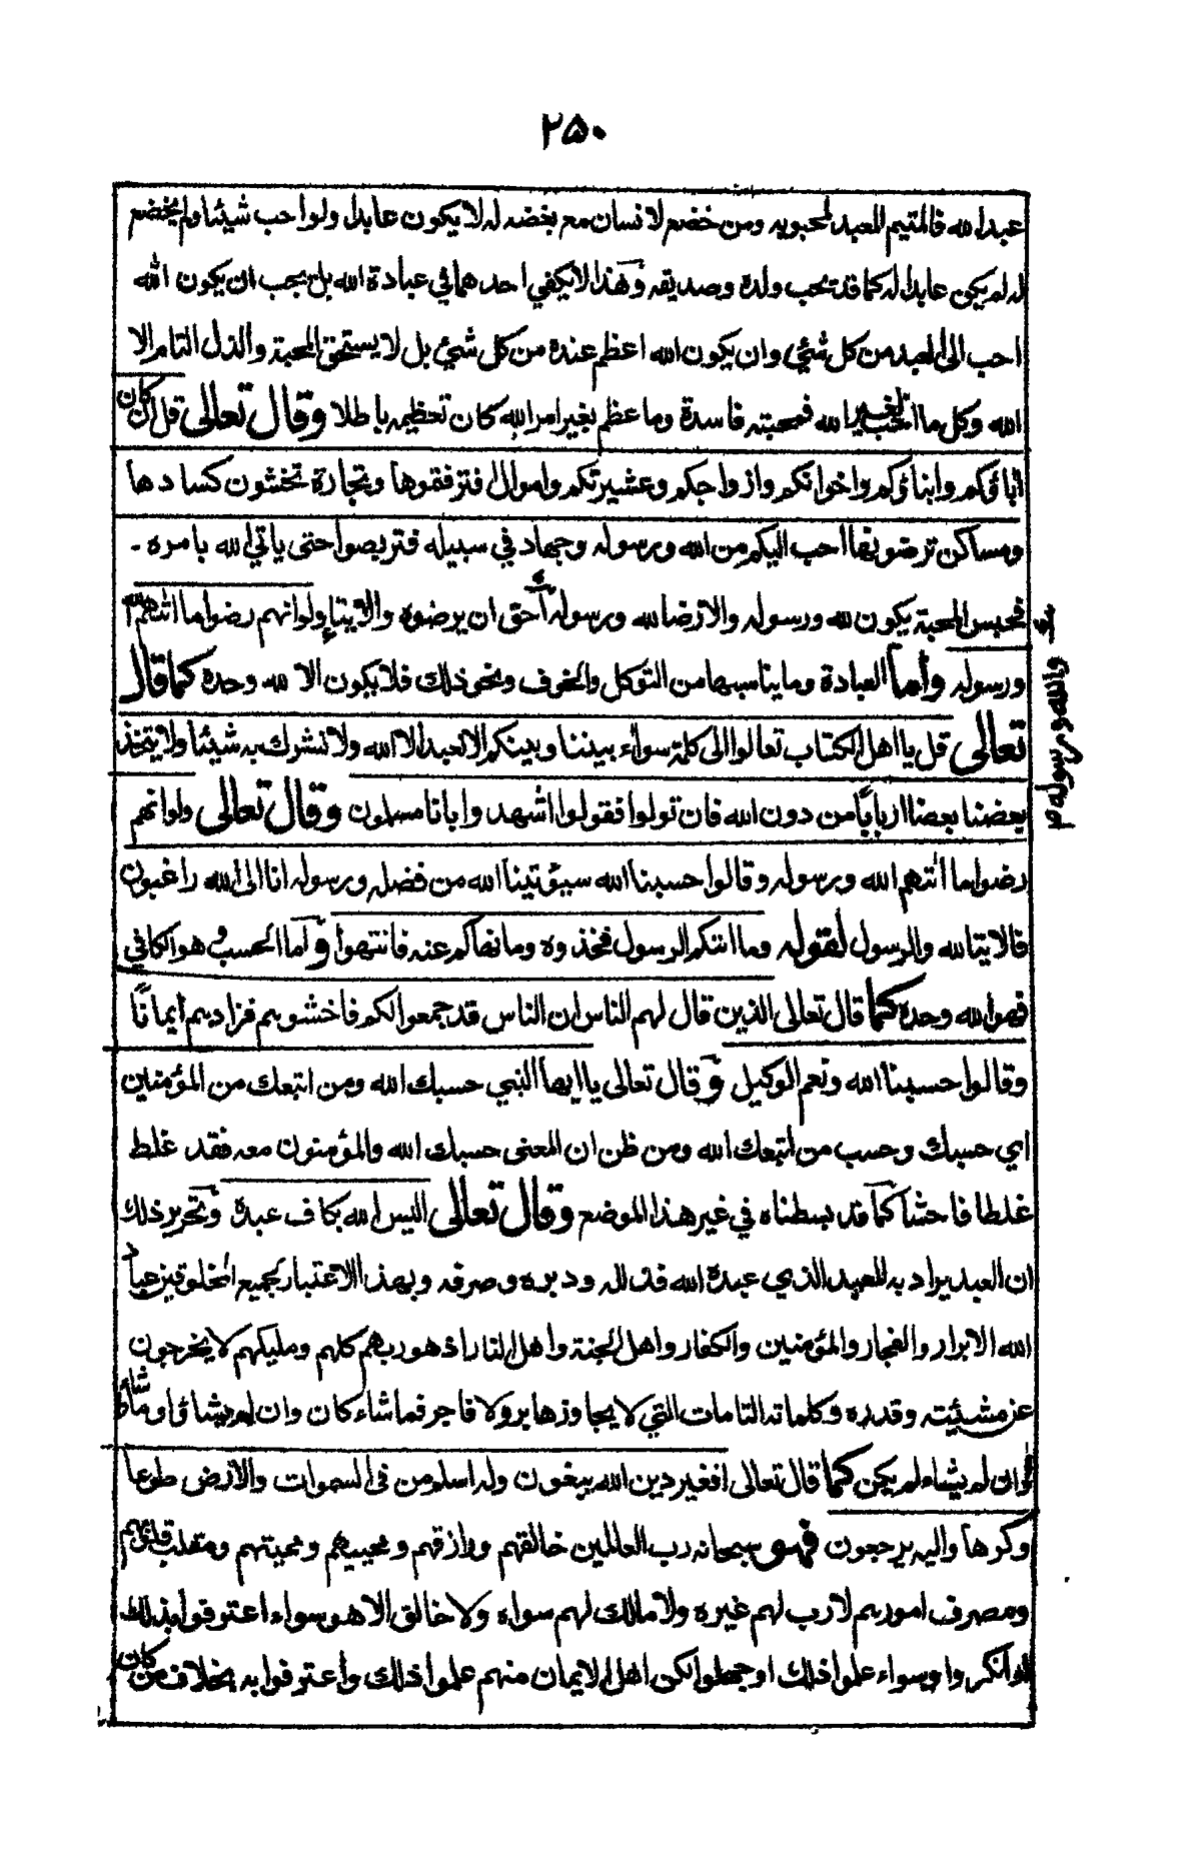 ٢٥٠
عبد الله فالمتيم المعبد لمحبوبه ومن خضع لانسان مع بغضه له لا يكون عابدا ولو احب شيئا ولم يخضع
له لم يكن عابدا له كما قد يحب ولده وصديقه وبهذا لا يكفي احدهما في عبادة الله بل يجب ان يكون الله
احب الى العبد من كل شئ وان يكون الله اعظم عنده من كل شئ بل لا يستحق المحبة والذل التام الا
الله وكل ما احب لغير الله فمحبته فاسدة وما عظم بغير امر الله كان تعظيمه باطلا وقال تعالى قل ان كان
اباؤكم وابناؤكم واخوانكم وازواجكم وعشيرتكم واموال اقترفتموها وتجارة تخشون كسادها
ومساكن ترضونها احب اليكم من الله ورسوله وجهاد في سبيله فتربصوا حتى ياتي الله بامره -
فجنس المحبة يكون لله ورسوله والارضا لله ورسوله احق ان يرضوه والايتاء ولو انهم رضوا ما اتهم الله
ورسوله وأما العبادة وما يناسبها من التوكل والخوف ونحو ذلك فلا يكون الا لله وحده كما قال
تعالى قل يا اهل الكتاب تعالوا الى كلمة سواء بيننا وبينكم الا نعبد الا الله ولا نشرك به شيئا ولا يتخذ
بعضنا بعضا اربابًا من دون الله فان تولوا فقولوا اشهدوا بانا مسلمون وقال تعالى ولو انهم
رضوا ما اتهم الله ورسوله وقالوا حسبنا الله سيؤتينا الله من فضله ورسوله انا الى الله راغبون
فالايتا لله والرسول لقوله وما اتكم الرسول فخذوه وما نهاكم عنه فانتهوا وأما الحسب وهو الكافي
فهو الله وحده كما قال تعالى الذين قال لهم الناس ان الناس قد جمعوا لكم فاخشوهم فزادهم ايمانًا
وقالوا حسبنا الله ونعم الوكيل وقال تعالى يا ايها النبي حسبك الله ومن اتبعك من المؤمنين
اي حسبك وحسب من اتبعك الله ومن ظن ان المعنى حسبك الله والمؤمنون معه فقد غلط
غلطا فاحشا كما قد بسطناه في غير هذا الموضع وقال تعالى اليس الله بكاف عبده وتحرير ذلك
ان العبد يراد به المعبد الذي عبده الله فذلله ودبره وصرفه وبهذا الاعتبار لجميع المخلوقين عباد
الله الابرار والفجار والمؤمنين والكفار واهل الجنة واهل النار اذ هو ربهم كلهم ومليكهم لا يخرجون
عن مشيئته وقدره وكلماته التامات التي لا يجاوزها بر ولا فاجر فما شاء كان وان لم يشاؤا وما شاؤا
وان لم يشاء لم يكن كما قال تعالى افغير دين الله يبغون وله اسلم من في السموات والارض طوعا
وكرها واليه يرجعون فهو سبحانه رب العالمين خالقهم ورازقهم ومحييهم ومميتهم ومقلب قلوبهم
ومصرف امورهم لا رب لهم غيره ولا مالك لهم سواه ولا خالق الا هو سواء اعترفوا بذلك
او انكروا وسواء علموا ذلك او جهلوا لكن اهل الايمان منهم علموا ذلك واعترفوا به بخلاف من كان
والله ورسوله م